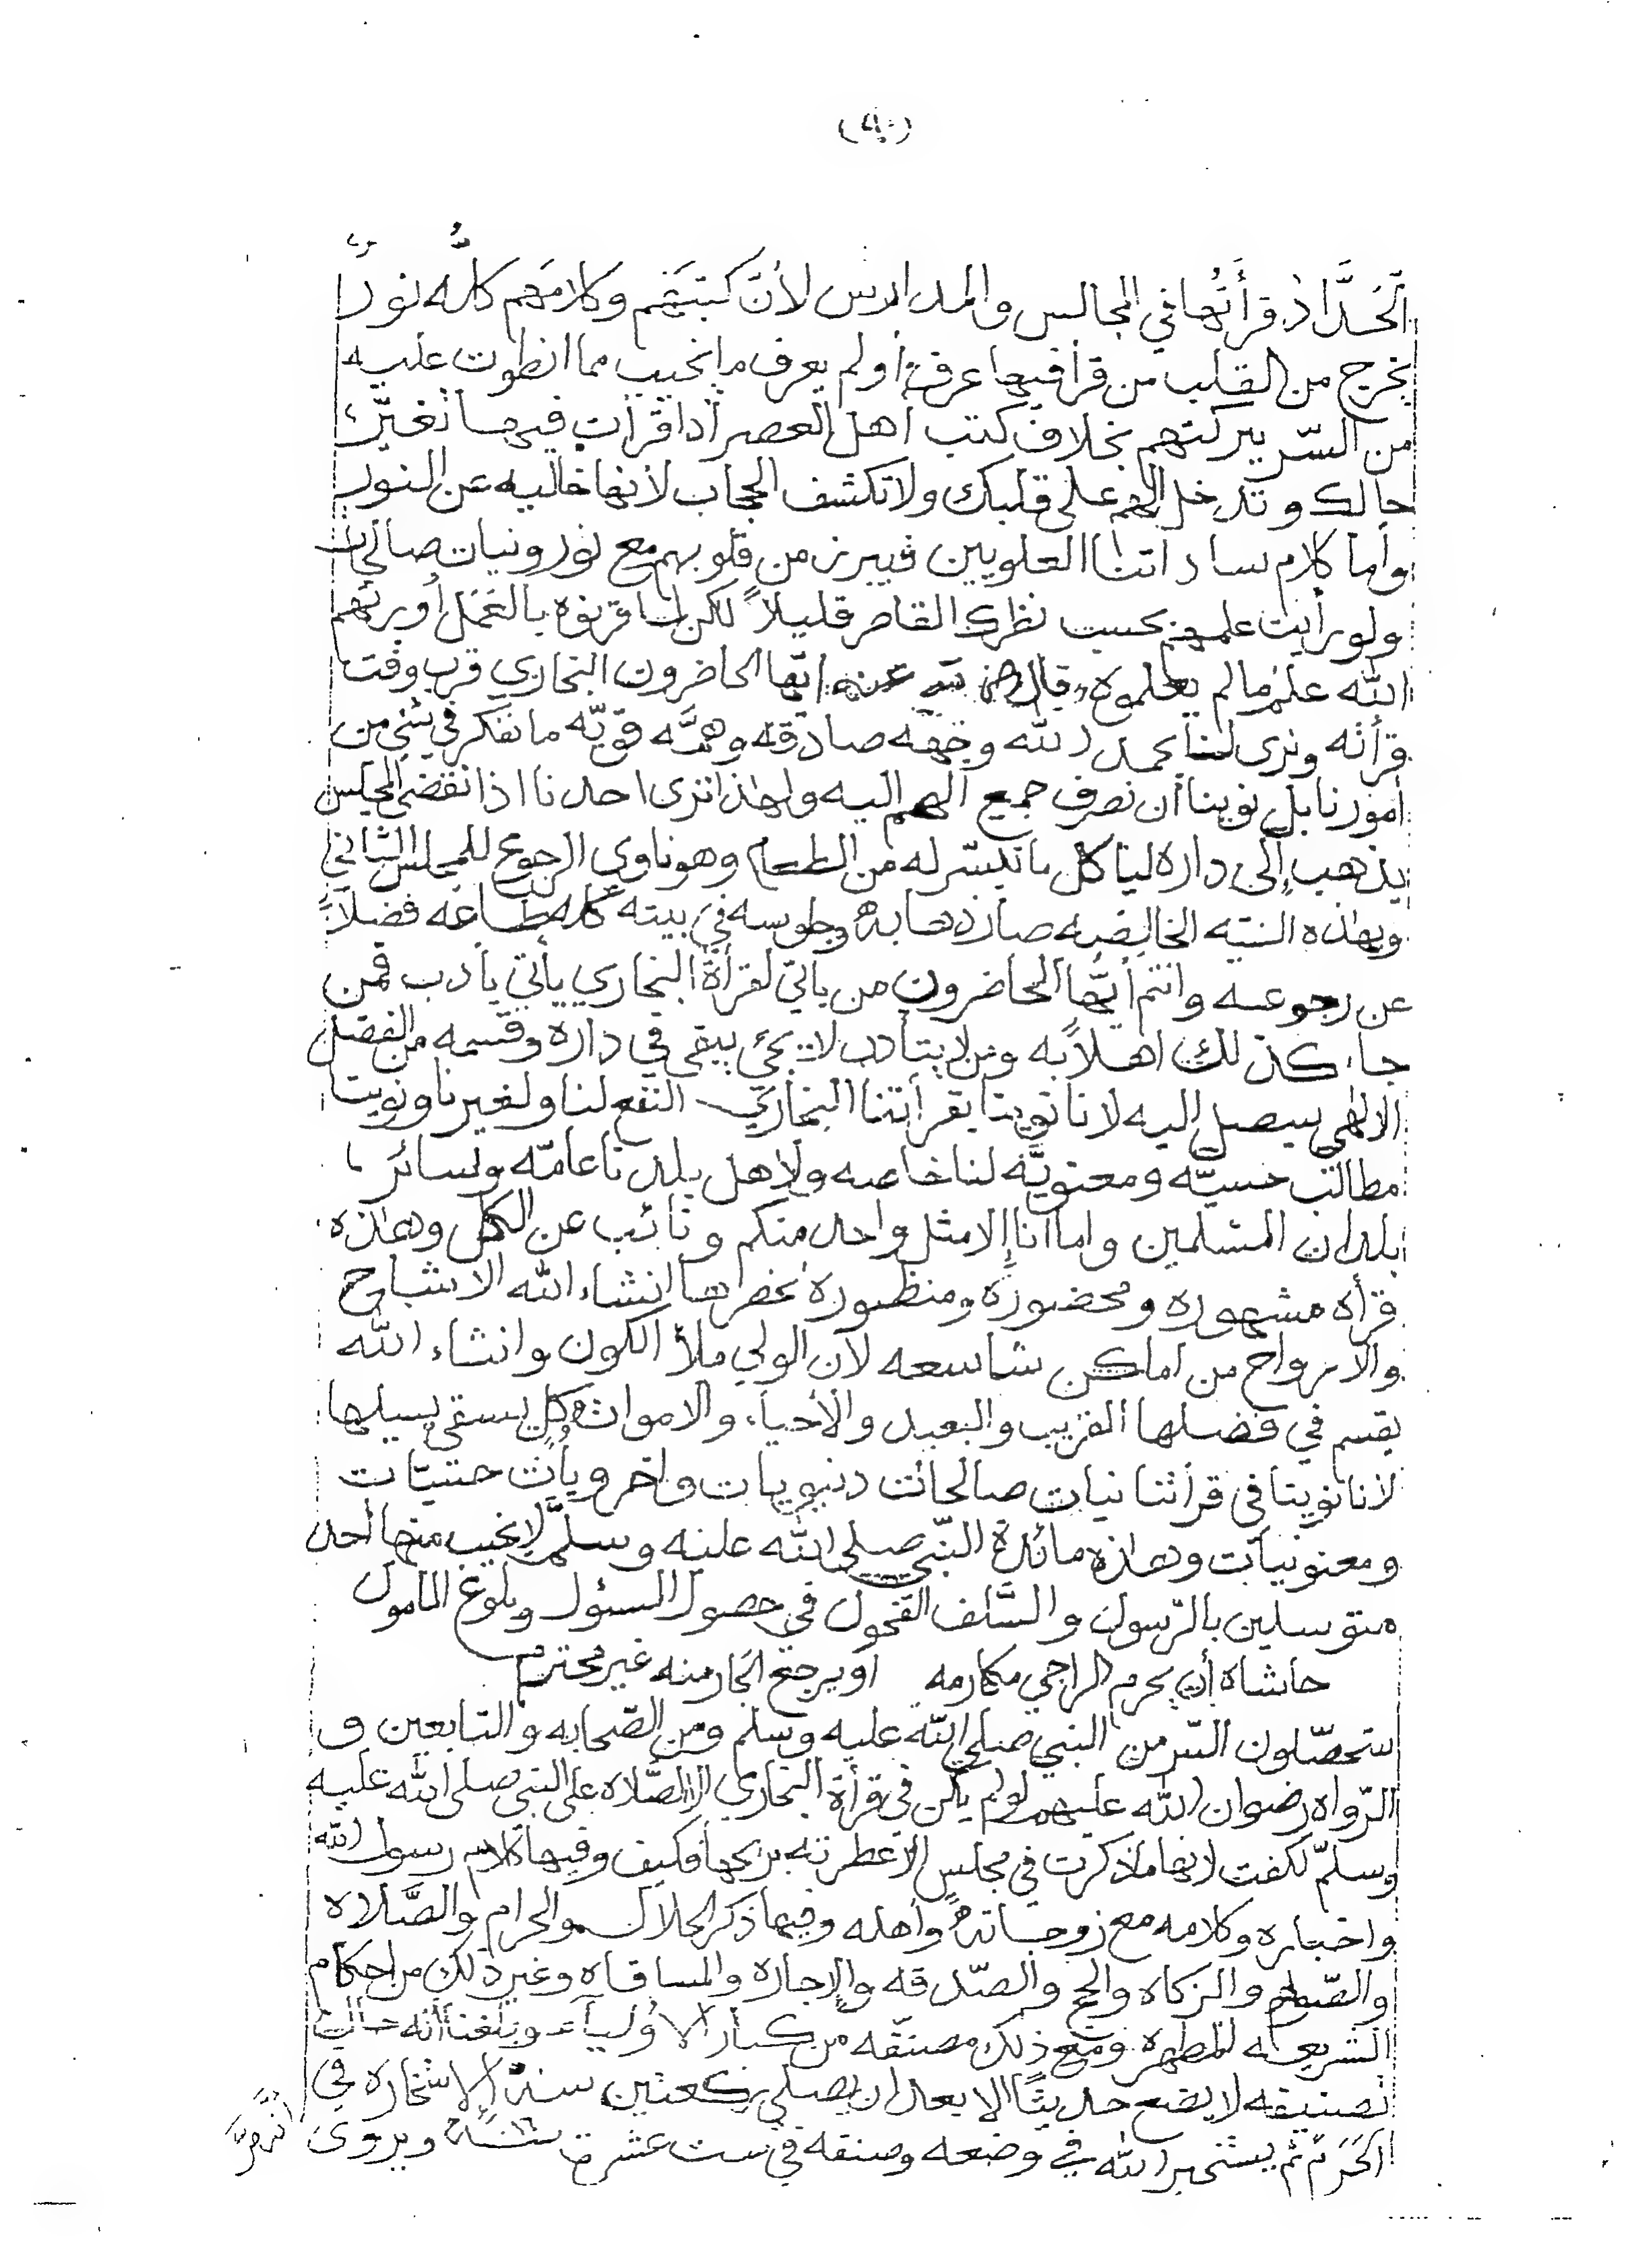 (٤٠)
الحدّاد قرأتها في المجالس والمدارس لأنّ كتبهم وكلامهم كلّه نور
يخرج من القلب من قرأ فيها عرف أو لم يعرف ما يخيب مما انطوت عليه
من السّر ببركتهم بخلاف كتب اهل العصر اذا قرأت فيها تغيّر
حالك وتدخل الهم على قلبك ولا تكشف الحجاب لأنها خاليه عن النور
وأما كلام ساداتنا العلويين فيبرز من قلوبهم مع نور ونيات صالحات
ولو رأيت علمهم بحسب نظرك القاصر قليلاً لكن لما قرنوه بالعمل أورثهم
الله علم مالم يعلموه وقال رضي الله عنه ايها الحاضرون البخاري قرب وقت
قرأته ونرى لنا بحمد الله وجهه صادقه وهمّه قويّه ما نفكر في شيء من
أمورنا بل نوينا أن نصرف جميع الهم اليه ولهذا نرى احدنا اذا نقض المجلس
يذهب إلى داره ليأكل ما تيسّر له من الطعام وهو ناوي الرجوع للمجلس الثاني
وبهذه النيّه الخالصه صار ذهابه وجلوسه في بيته كله طاعه فضلاً
عن رجوعه وانتم أيّها الحاضرون من يأتي لقرأة البخاري يأتي بأدب فمن
جاء كذلك اهلاً به ومن لا يتأدب لا يجيء يبقى في داره وقسمه من الفضل
الإلهي سيصل اليه لانا نوينا بقرأتنا البخاري النفع لنا ولغيرنا ونوينا
مطالب حسيّه ومعنويّه لنا خاصه ولاهل بلدنا عامّه ولسائر
بلدان المسلمين واما أنا إلا مثل واحد منكم ونائب عن الكل وهذه
قرأه مشهوره ومحضوره ومنظوره يحضرها انشاء الله الاشباح
والأرواح من اماكن شاسعه لان الولي ملأ الكون وانشاء الله
يقسم في فضلها القريب والبعيد والأحياء والاموات وكل يسقى بسيلها
لأنا نوينا في قرأتنا نيات صالحات دنيويات واخرويات حسيّات
ومعنويات وهذه مائدة النّبي صلى الله عليه وسلّم لا يخيب منها أحد
متوسلين بالرّسول والسَّلف الفحول في حصول السئول وبلوغ المأمول
حاشاه أن يحرم الراجي مكارمه أو يرجع الجار منه غير محترم
ستحصّلون السّر من النبي صلى الله عليه وسلم ومن الصّحابه والتابعين و
الرّواه رضوان الله عليهم لو لم يكن في قرأة البخاري إلا الصَّلاه على النبي صلى الله عليه
وسلّم لكفت لانها ما ذكرت في مجلس إلا عطرته بريحها فكيف وفيها كلام رسول الله
واخباره وكلامه مع زوجاته وأهله وفيها ذكر الحلال والحرام والصَّلاه
والصّيام والزكاه والحج والصّدقه والإجاره والمساقاه وغير ذلك من احكام
الشريعه المطهره ومع ذلك مصنّفه من كبار الأولياء وبلغنا أنه حال
تصنيفه لا يضع حديثًا الا بعد ان يصلي ركعتين سنة الاستخاره في
الحَرَم ثم يستخير الله في وضعه وصنفه في ست عشرة سنة ويروى